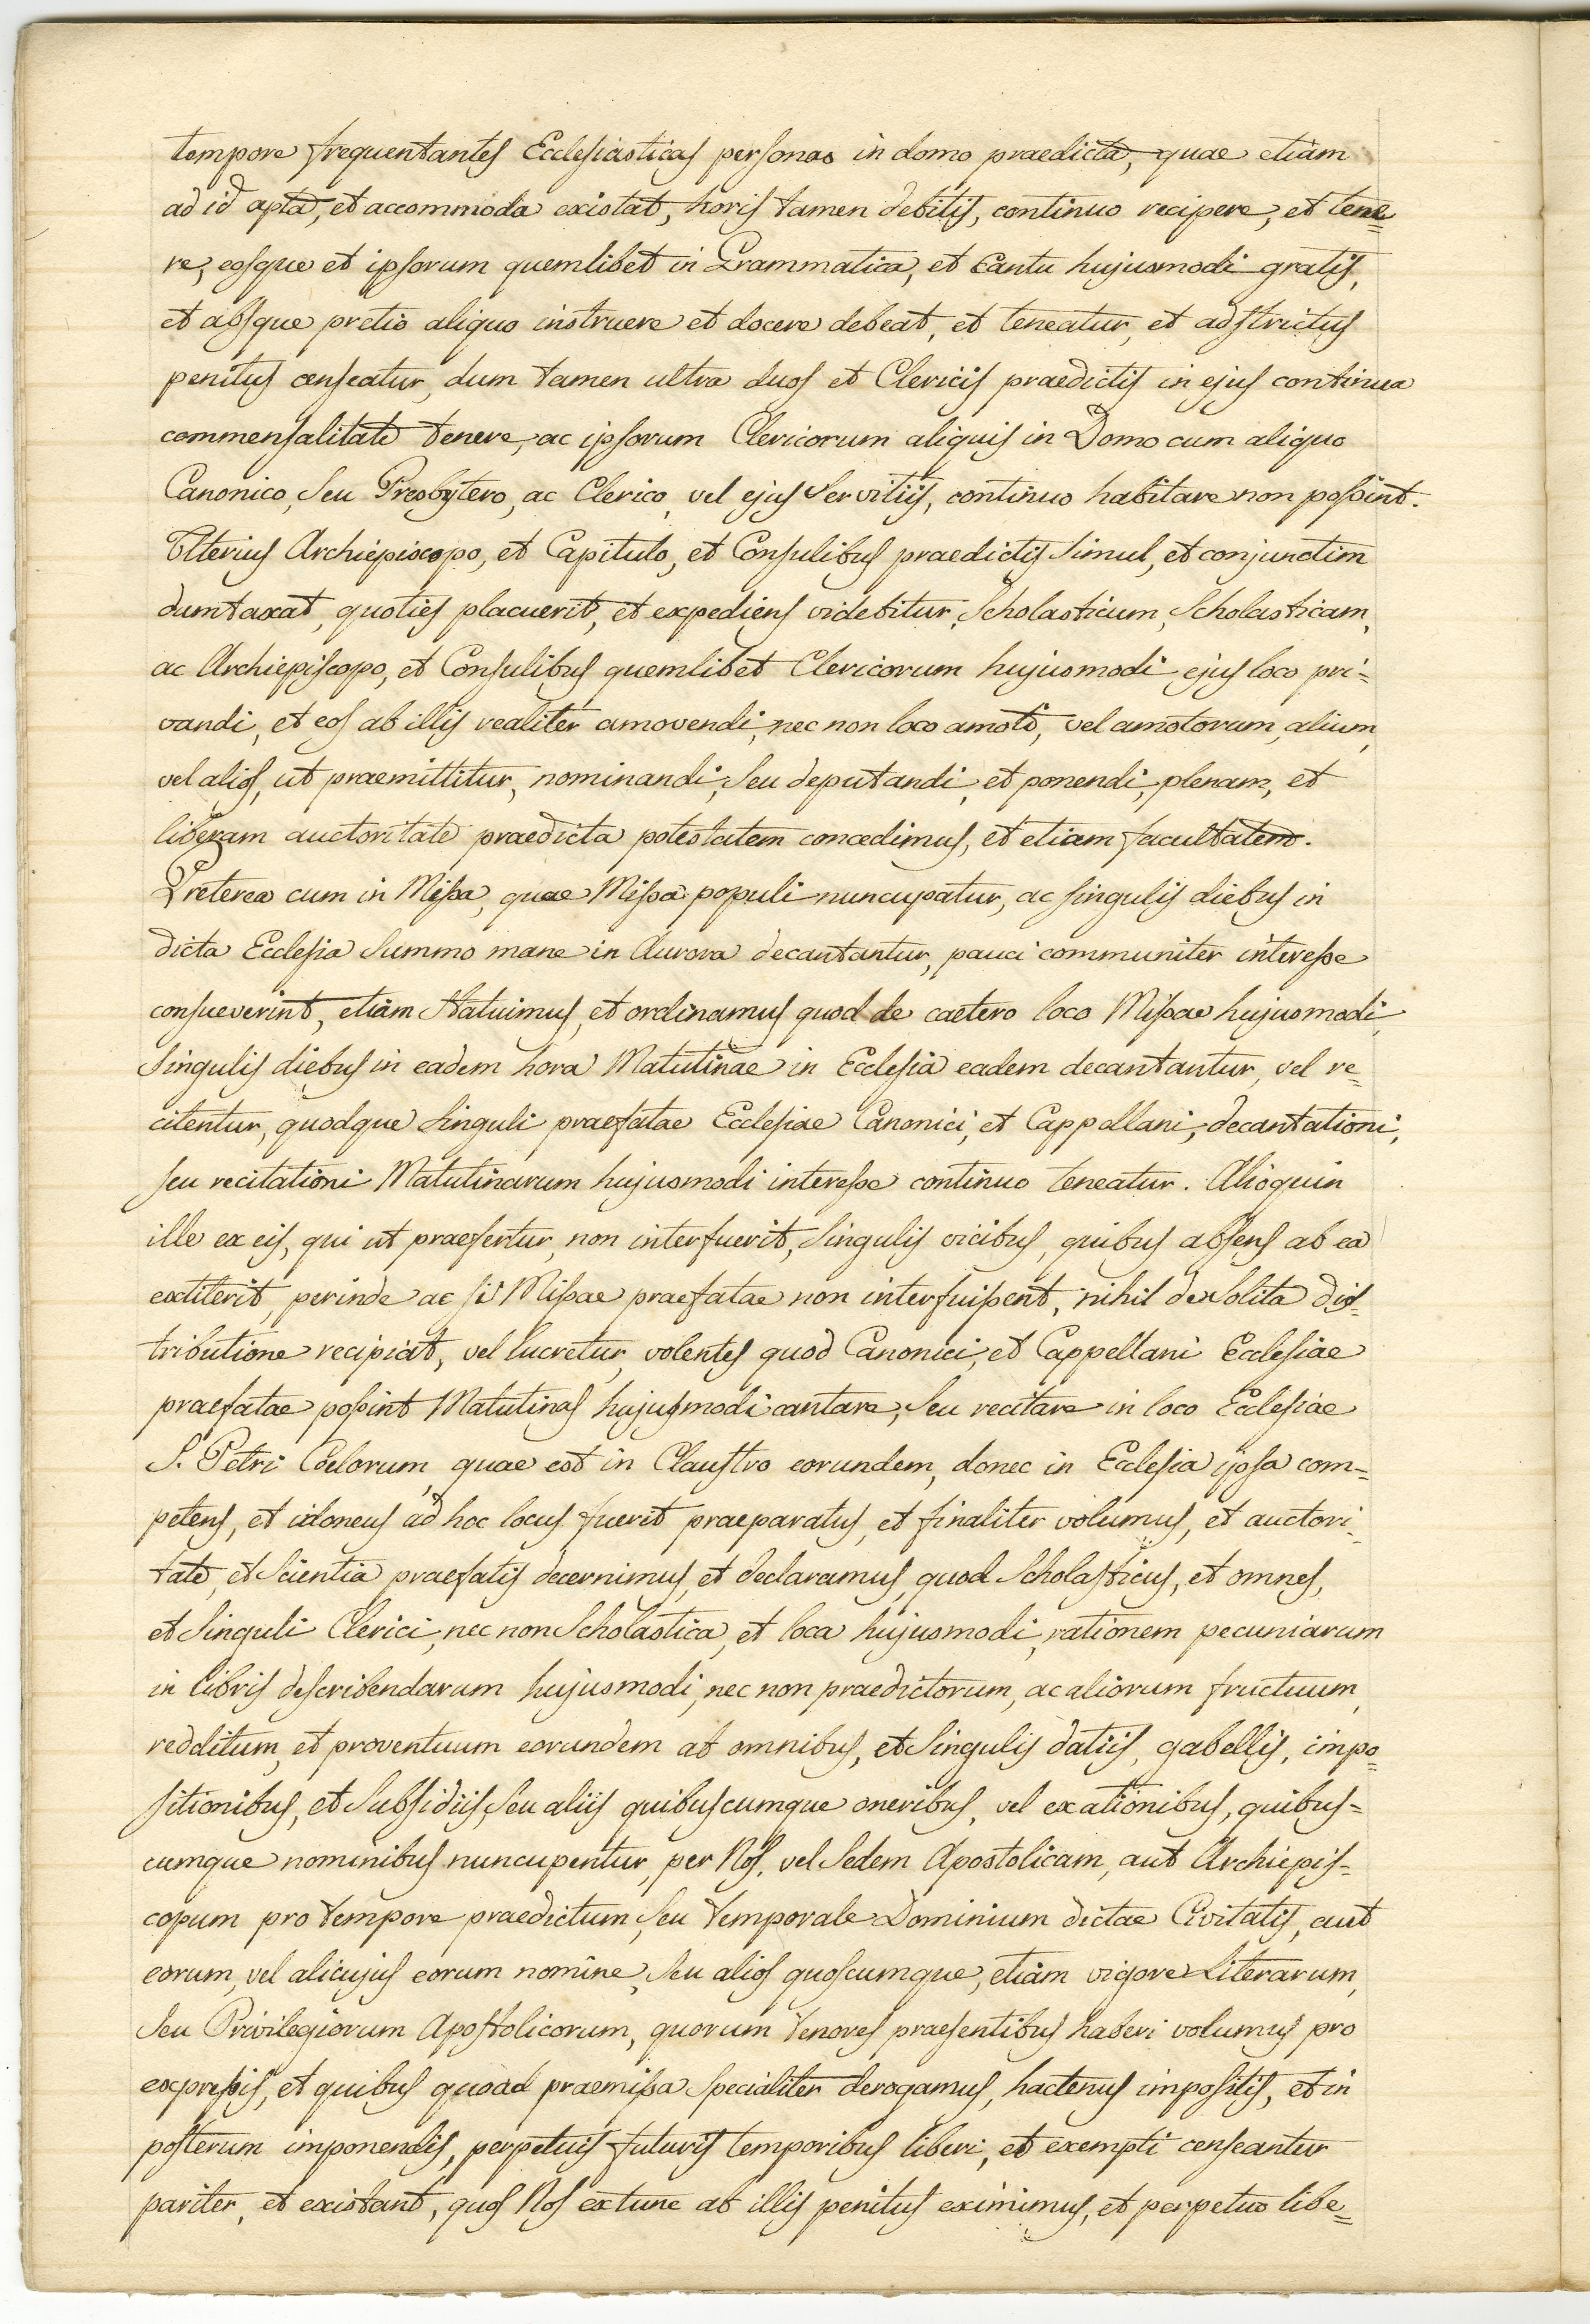 tempore frequentantes Ecclesiasticas personas in domo praedicta, quae etiam
ad id apta, et accommoda existat, horis tamen debitis, continuo recipere, et tene=
re, eosque et ipsorum quemlibet in Grammatica, et Cantu hujusmodi gratis,
et absque pretio aliquo instruere et docere debeat, et teneatur, et adstrictus
penitus censeatur, dum tamen ultra duos et Clericis praedictis in ejus continua
commensalitate tenere, ac ipsorum Clericorum aliquis in Domo cum aliquo
Canonico, seu Presbytero, ac Clerico, vel ejus servitiis, continuo habitare non possint.
Ulterius Archiepiscopo, et Capitulo, et Consulibus praedictis simul, et conjunctim
dumtaxat, quoties placuerit, et expediens videbitur, Scholasticum, Scholasticam,
ac Archiepiscopo, et Consulibus quemlibet Clericorum hujusmodi ejus loco pri=
vandi, et eos ab illis realiter amovendi, nec non loco amoti, vel amotorum, alium,
vel alios, ut praemittitur, nominandi, seu deputandi, et ponendi, plenam, et
liberam auctoritate praedicta potestatem concedimus, et etiam facultatem.
Preterea cum in Missa, quae Missa populi nuncupatur, ac singulis diebus in
dicta Ecclesia summo mane in Aurora decantantur, pauci communiter interesse
consueverint, etiam statuimus, et ordinamus quod de caetero loco Missae hujusmodi,
singulis diebus in eadem hora Matutinae in Ecclesia eadem decantantur, vel re=
citentur, quodque singuli praefatae Ecclesiae Canonici, et Cappellani, decantationi,
seu recitationi Matutinarum hujusmodi interesse continuo teneatur. Alioquin
ille ex eis, qui ut praefertur, non interfuerit, singulis vicibus, quibus absens ab ea
extiterit, perinde ac si Missae praefatae non interfuissent, nihil de solita dis=
tributione recipiat, vel lucretur, volentes quod Canonici, et Cappellani Ecclesiae
praefatae possint Matutinas hujusmodi cantare, seu recitare in loco Ecclesiae
S. Petri Coelorum, quae est in Claustro eorundem, donec in Ecclesia ipsa com=
petens, et idoneus ad hoc locus fuerit praeparatus, et finaliter volumus, et auctori=
tate, et scientia praefatis decernimus, et declaramus, quod Scholasticus, et omnes,
et singuli Clerici, nec non Scholastica, et loca hujusmodi, rationem pecuniarum
in libris describendarum hujusmodi, nec non praedictorum, ac aliorum fructuum,
redditum, et proventuum eorundem ab omnibus, et singulis datiis, gabellis, impo=
sitionibus, et subsidiis, seu aliis quibuscumque oneribus, vel exationibus, quibus=
cumque nominibus nuncupentur, per Nos, vel Sedem Apostolicam, aut Archiepis=
copum pro tempore praedictum, seu temporale Dominium dictae Civitatis, aut
eorum, vel alicujus eorum nomine, seu alios quoscumque, etiam vigore Literarum,
seu Privilegiorum Apostolicorum, quorum tenores praesentibus haberi volumus pro
expressis, et quibus quoad praemissa specialiter derogamus, hactenus impositis, et in
posterum imponendis, perpetuis futuris temporibus liberi, et exempti censeantur
pariter, et existant, quos Nos extunc ab illis penitus eximimus, et perpetuo libe=